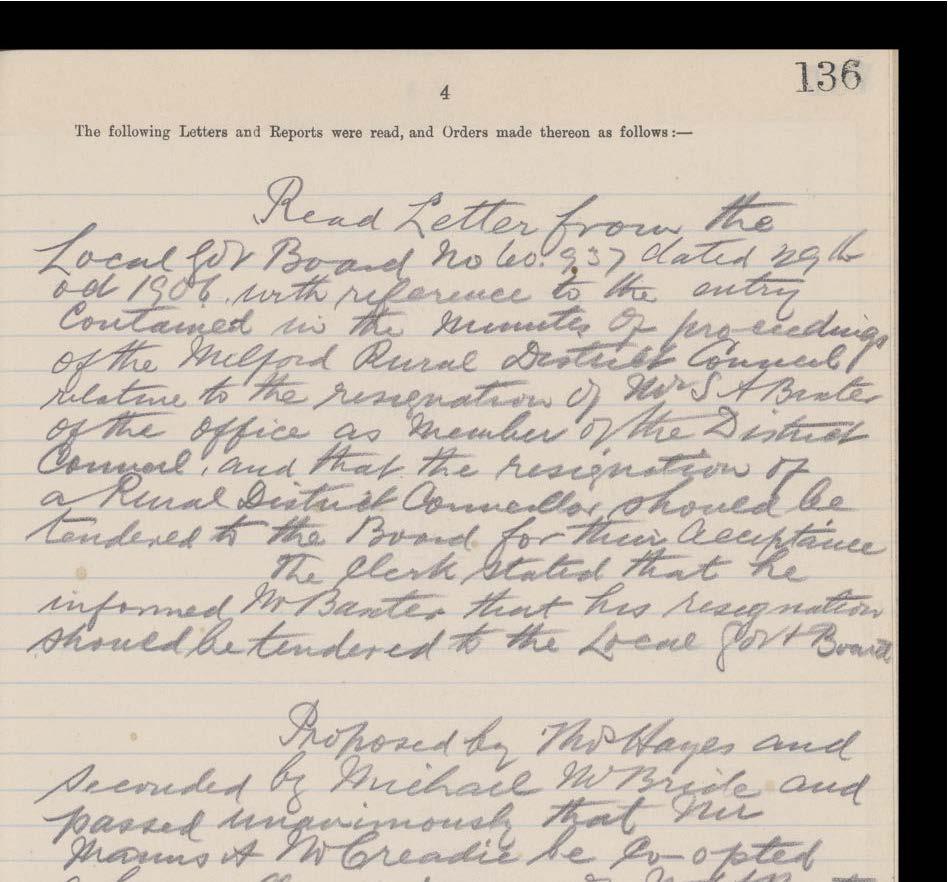 136
4
The following Letters and Reports were read, and Orders made thereon as follows:—
Read Letter from the
Local Govt Board No 60.937 dated 29th
oct 1906. with reference to the entry
Contained in the minutes of proceedings
of the Milford Rural District Council
relative to the resignation of Mr S A Baxter
of the office as Member of the District
Council, and that the resignation of
a Rural District Councillor should be
tendered to the Board for their Acceptance
The Clerk stated that he
informed Mr Baxter that his resignation
should be tendered to the Local Govt Board
Proposed by Thos Hayes and
seconded by Michael McBride and
passed unanimously that Mr
Manus A McCreadie be Co-opted